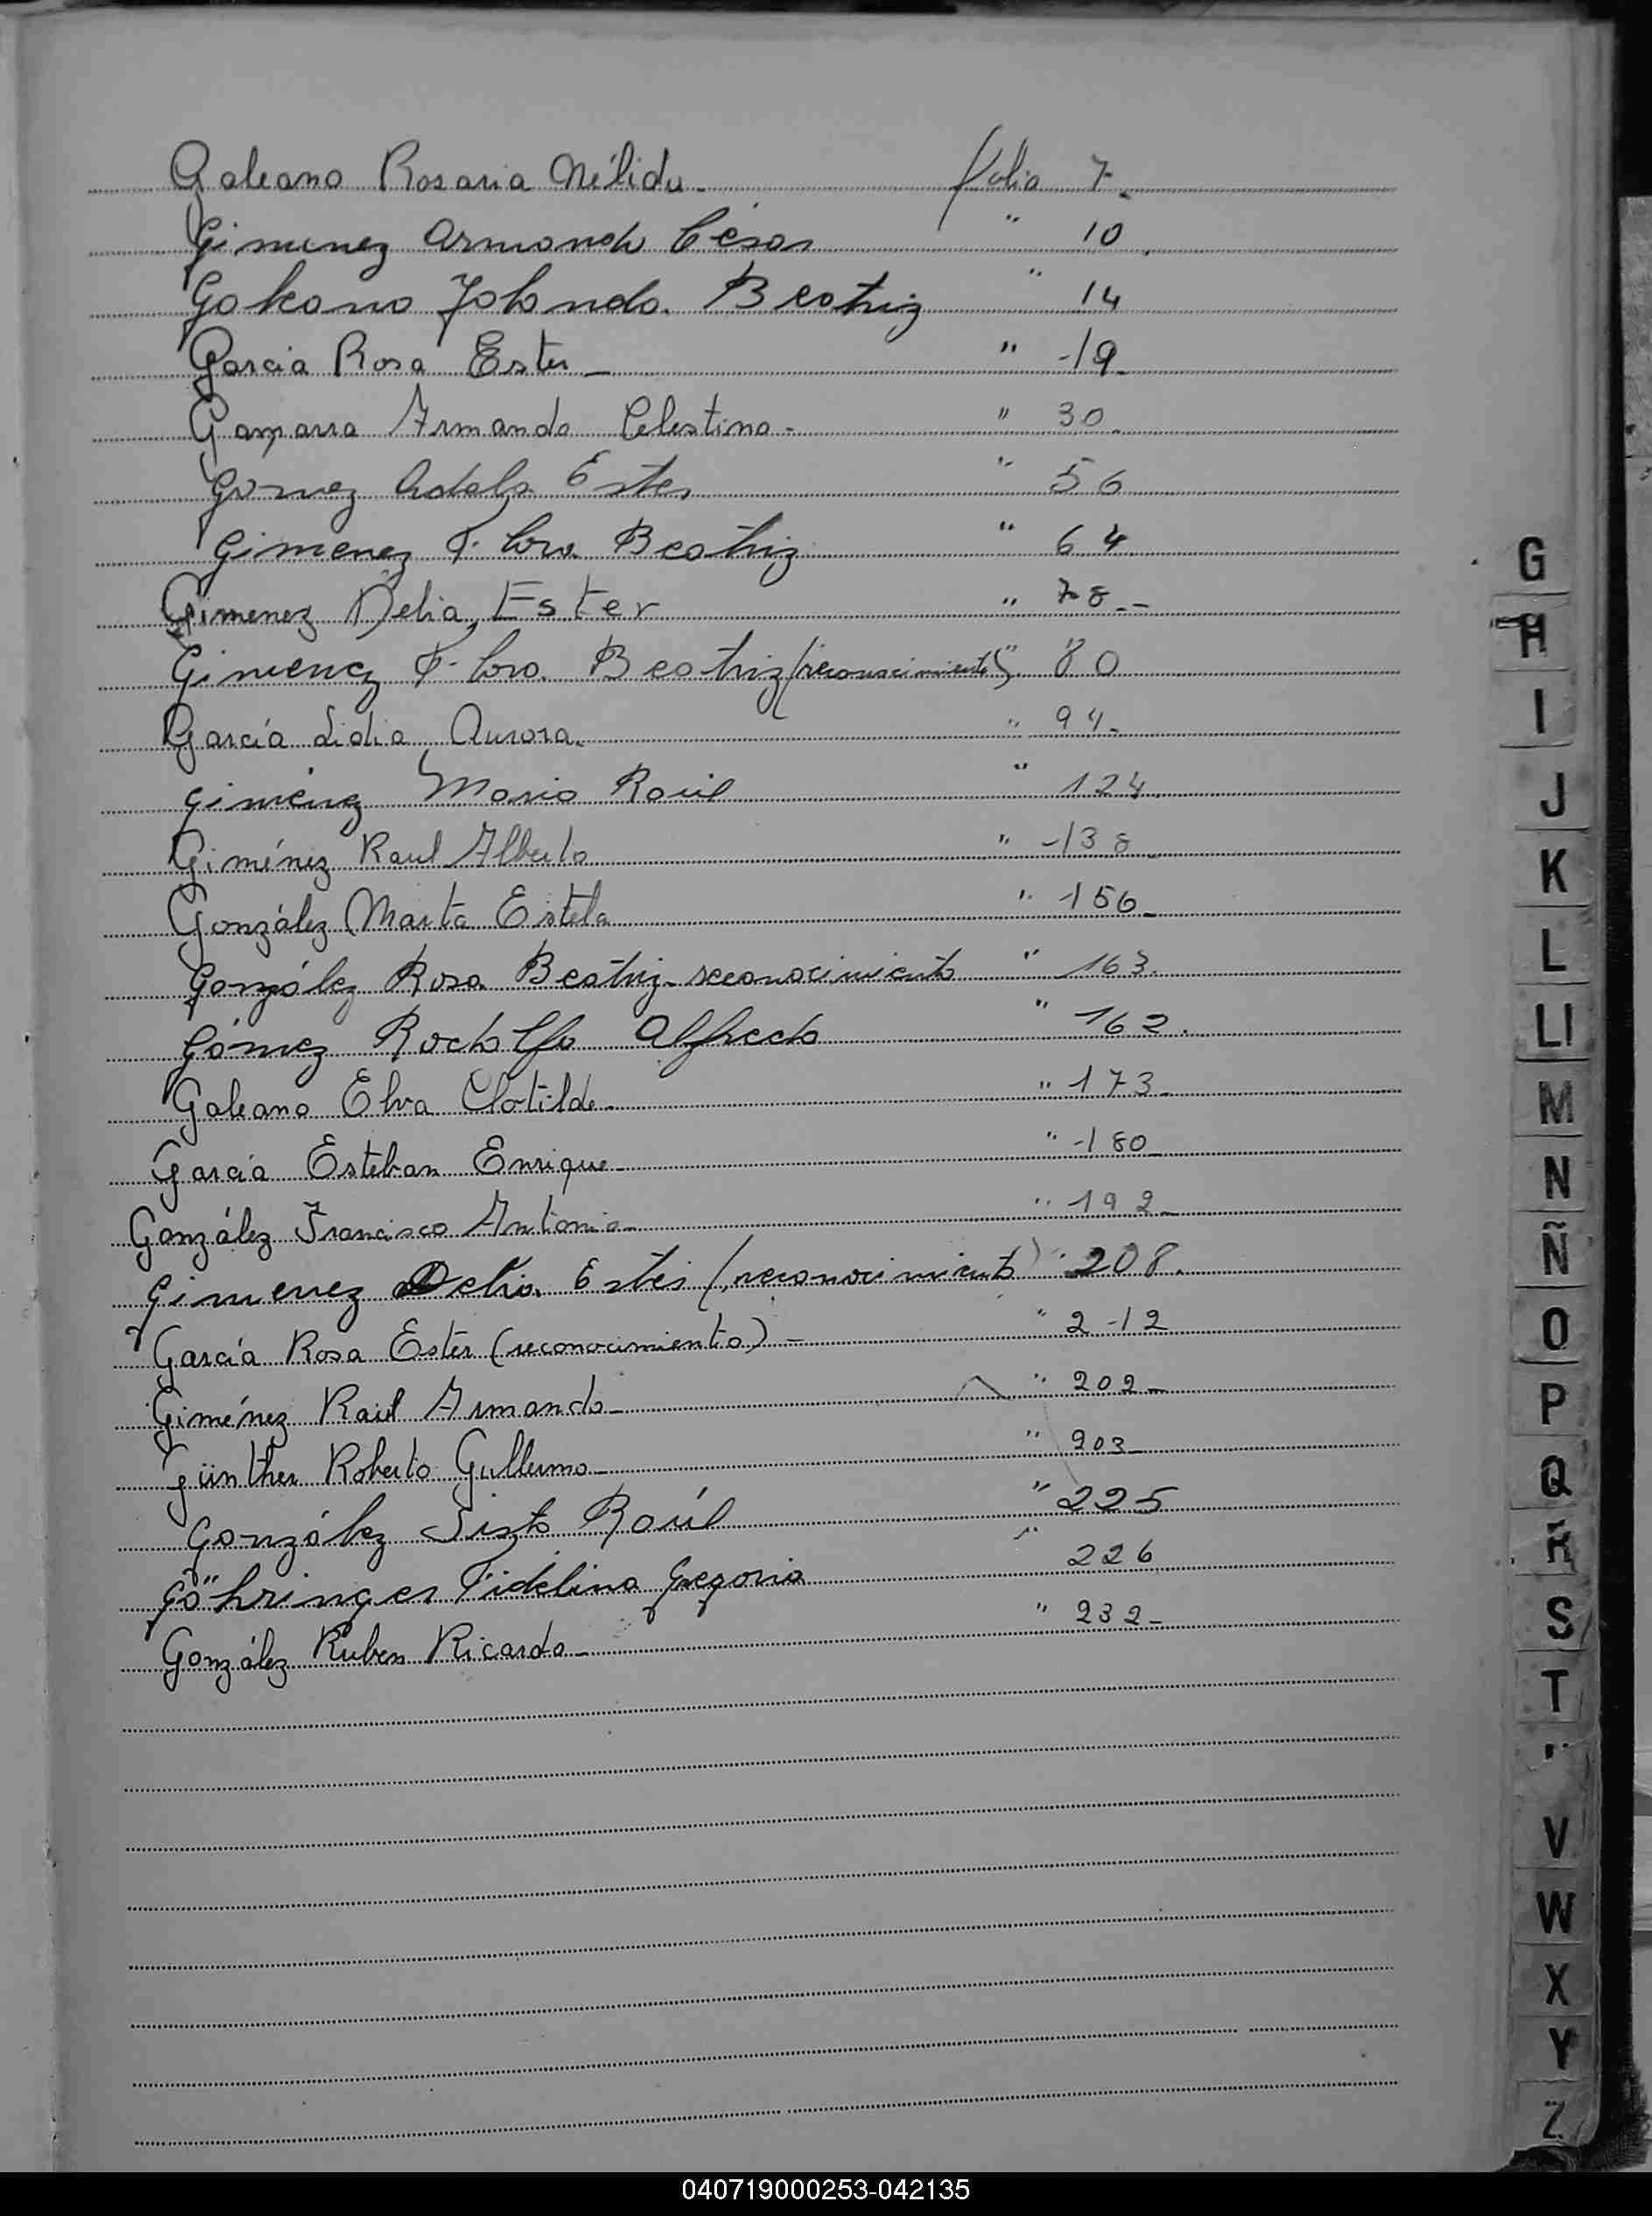 Galeano Rosaria Nélida. folio 7.
Gimenez Armando César " 10.
Galeano Yolanda Beatriz " 14
Garcia Rosa Ester " 19.
Gamarra Armando Celestino. " 30.
Gómez Adela Ester " 56
Gimenez Flora Beatriz " 64
Gimenez Delia Ester " 78.-
Gimenez Flora Beatriz (reconocimiento) " 80
García Lidia Aurora. " 94-
Giménez Mario Raúl " 124.
Giménez Raul Alberto " 138
González Marta Estela " 156-
González Rosa Beatriz-reconocimiento " 163.
Gómez Rodolfo Alfredo " 162.
Galeano Elva Clotilde- " 173-
García Esteban Enrique- " 180
González Francisco Antonio- " 192-
Gimenez Delia Ester (reconocimiento) " 208.
García Rosa Ester (reconocimiento)- " 212
Giménez Raúl Armando- " 202-
Günther Roberto Guillermo- " 203-
González Sixto Raúl " 225
Göhringer Fidelina Gregoria " 226
González Ruben Ricardo- " 232-
G
H
I
J
K
L
Ll
M
N
Ñ
O
P
Q
R
S
T
V
W
X
Y
Z
040719000253-042135